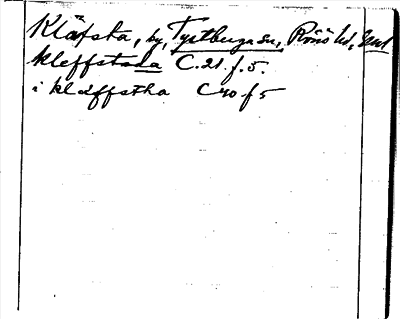 Kläfsta, by, Tystberga sn, Rönö hd, Söd
kleffstada C.21.f.5.
i kläffstha C40 f5